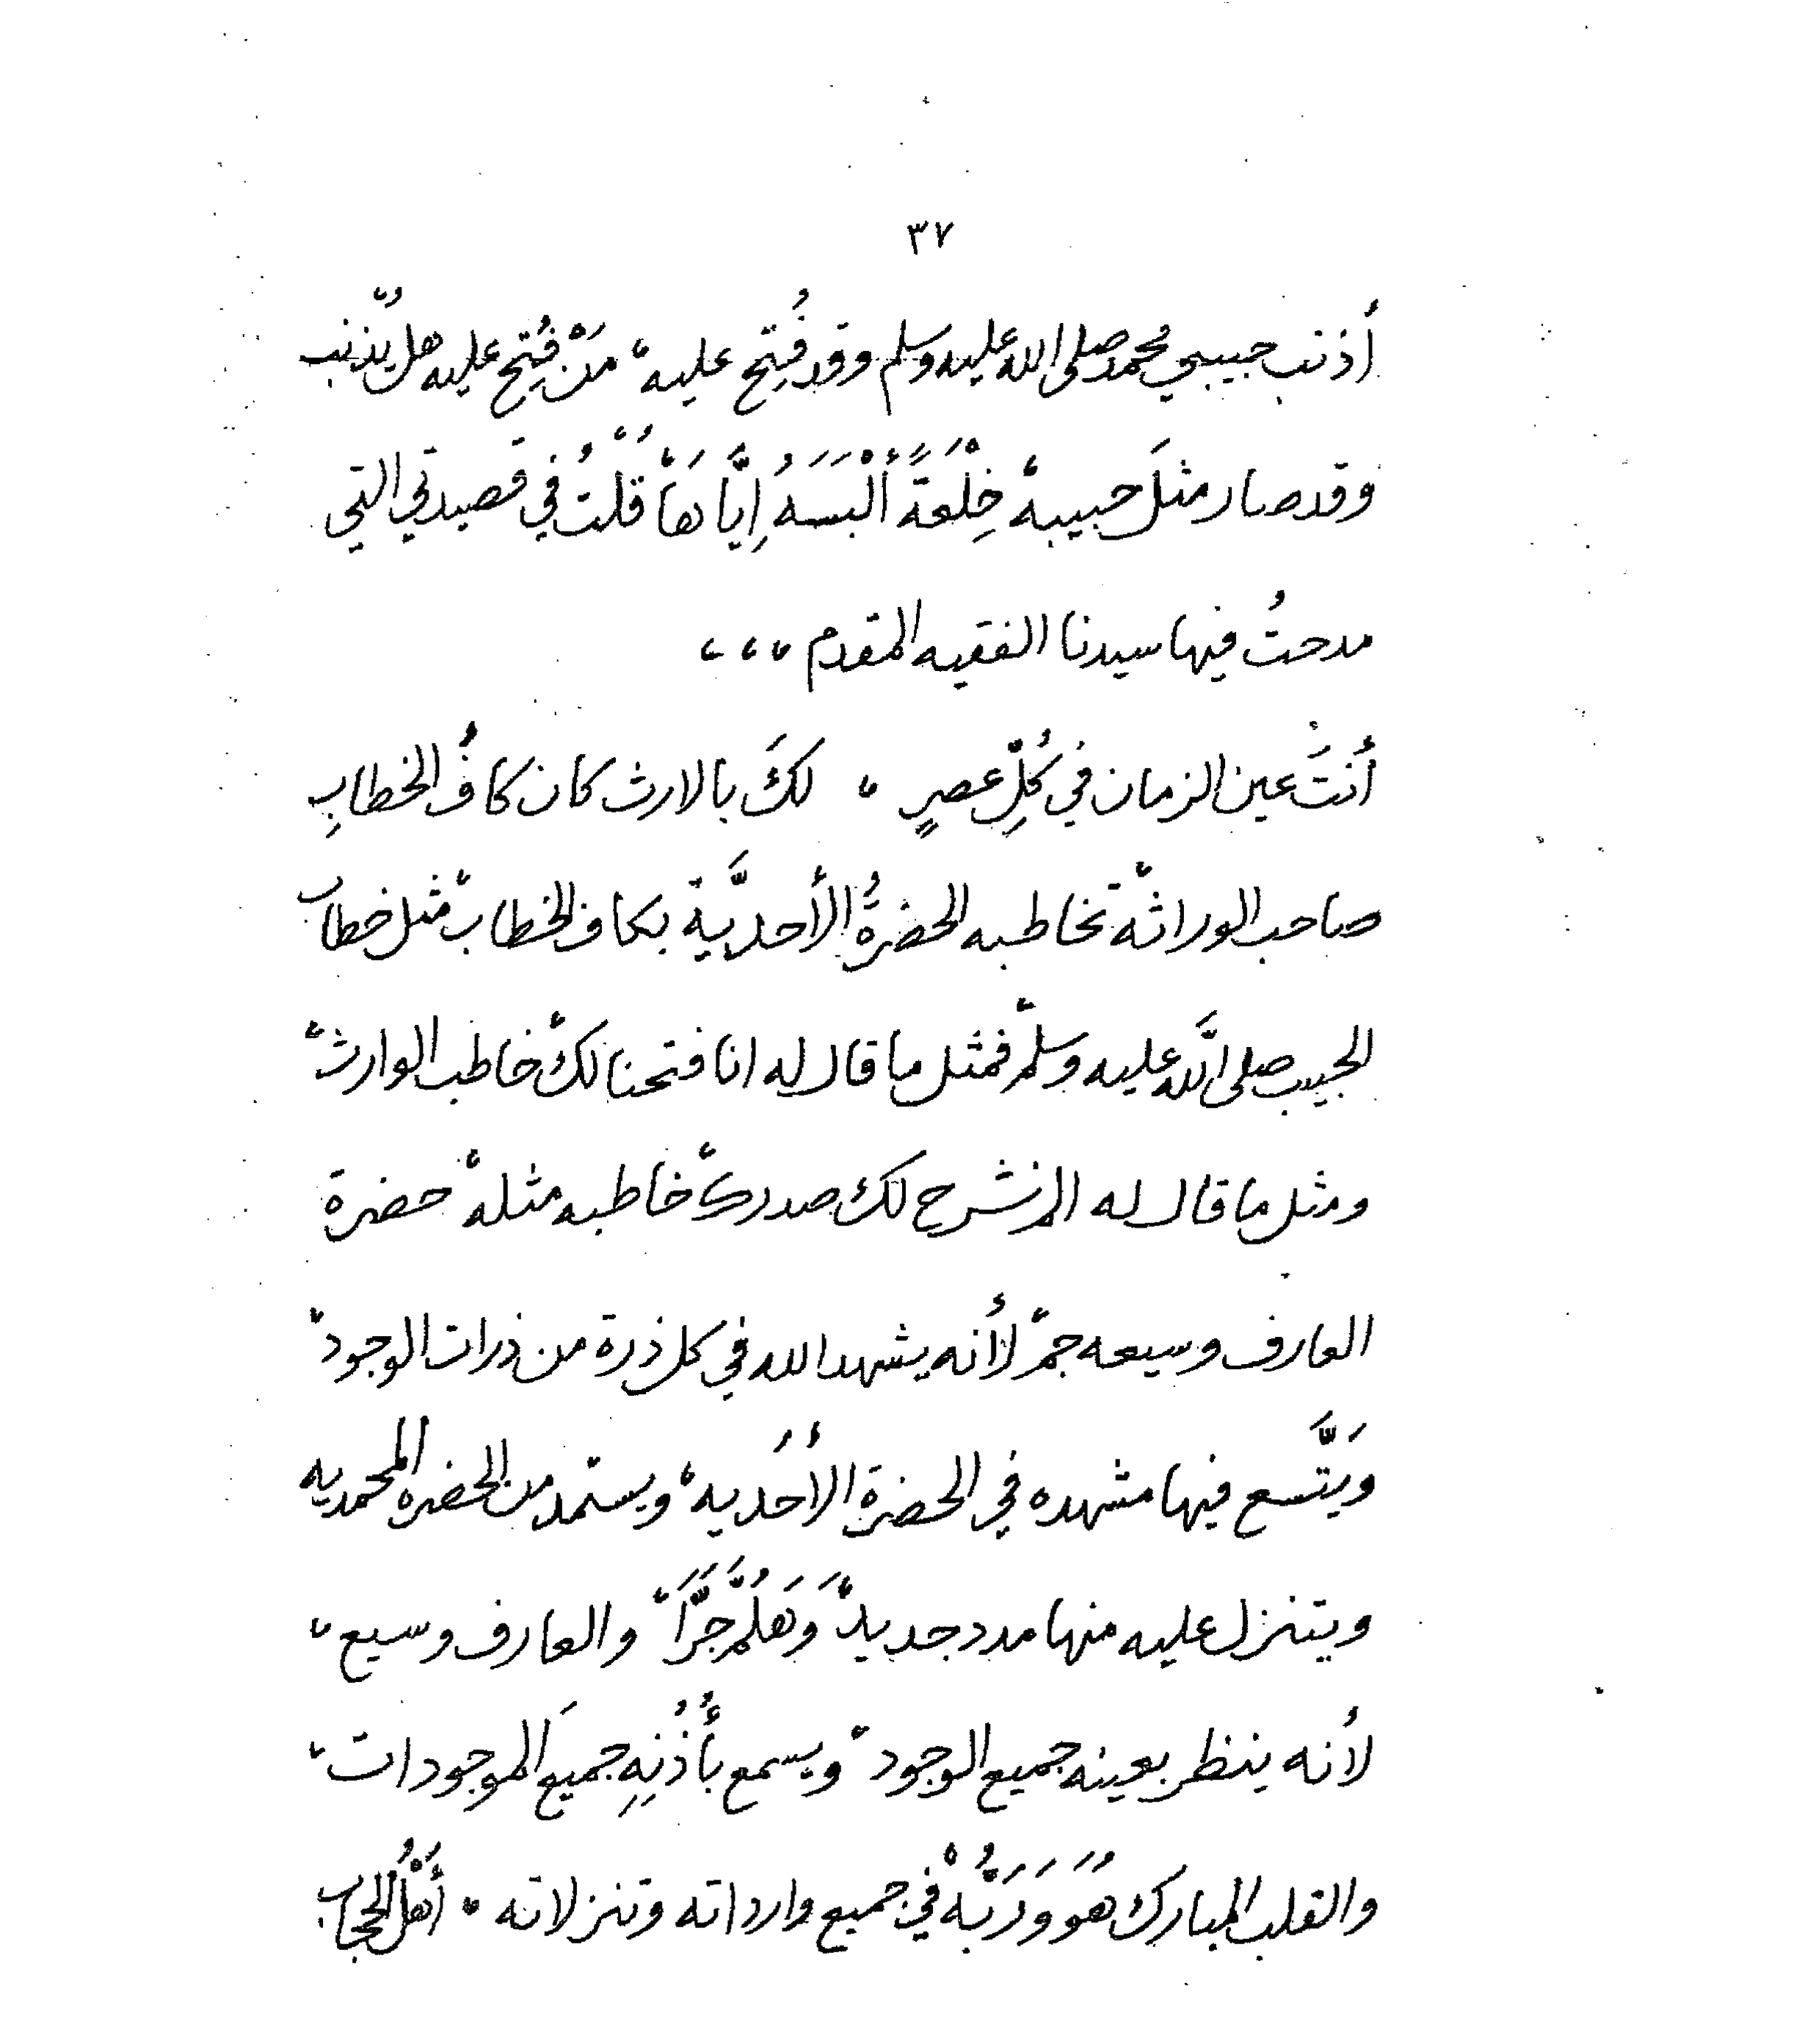 ٣٧
أذنب حبيبي محمد صلى الله عليه وسلم وقد فُتِح عليه، مَنْ فُتِح عليه هل يُذنب
وقد صار مثلَ حبيبه، خِلْعَةً أَلْبَسَهُ إِيَّاهَا، قُلْتُ في قصيدتي التي
مدحتُ فيها سيدنا الفقيه المقدم ،،،
أنتَ عين الزمان في كُلِّ عصرٍ ، لكَ بالارث كان كافُ الخطابِ
صاحب الوراثة، تخاطبه الحضرةُ الأحدَيَّة بكاف الخطاب، مثل خطاب
الحبيب صلى الله عليه وسلم، فمثل ما قال له انا فتحنا لك، خاطب الوارث،
ومثل ما قال له الم نشرح لك صدرك، خاطبه مثله، حضرة
العارف وسيعه جمّ، لأنه يشهد الله في كل ذرة من ذرات الوجود،
وَيَتَّسع فيها مشهده في الحضرة الأحَديه، ويستمد من الحضره المحمديه
ويتنزل عليه منها مدد جديد، وَهَلُمَّ جَرَّاً، والعارف وسيع،
لأنه ينظر بعينه جميع الوجود، ويسمع بأُذُنِهِ جميعَ الموجودات،
والقلب المبارك هُوَ وَرَبُّهُ في جميع وارداته وتنزلاته ، أَهْلُ الحجاب